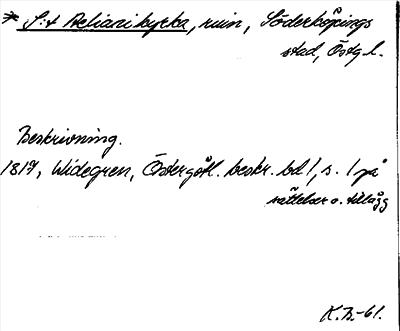 * S:t Aeliani kyrka, ruin, Söderköpings
stad, Östg l.
Beskrivning.
1817, Widegren, Östergötl. beskr. bd 1, s. 1 på
rättelser o. tillägg
K.B.-61.